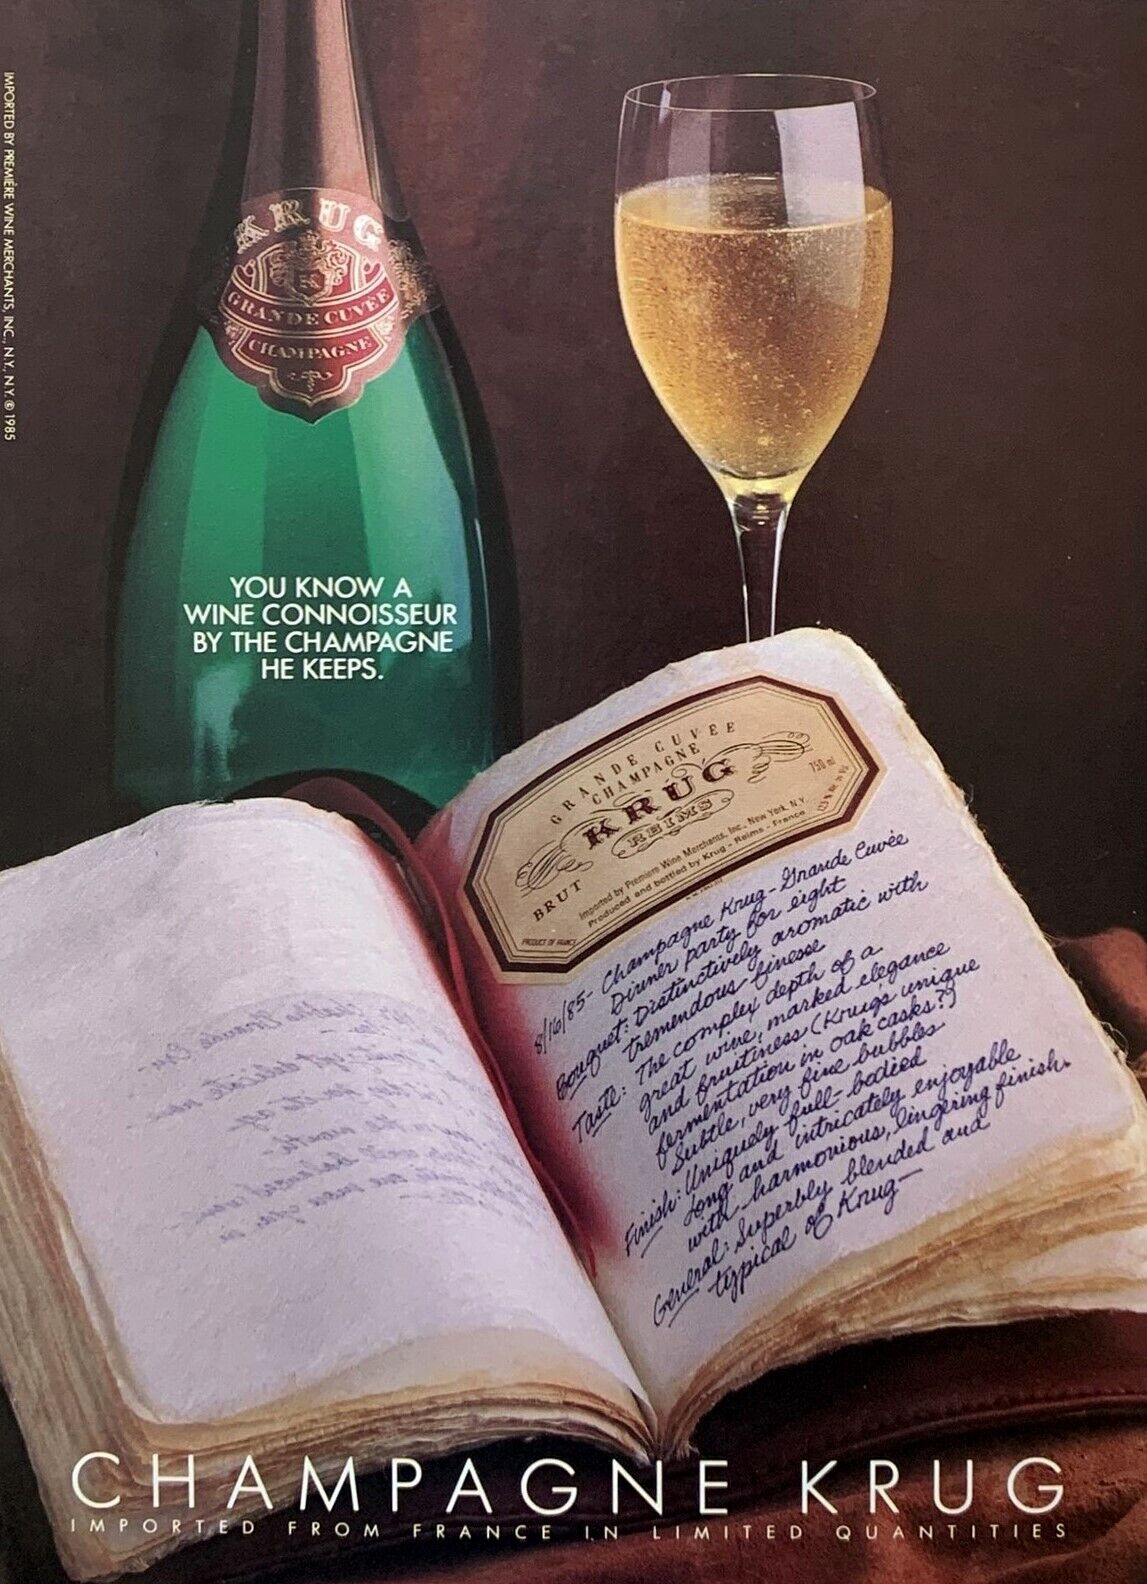 IMPORTED BY PREMIÈRE WINE MERCHANTS, INC., N.Y., N.Y. © 1985
KRUG
GRANDE CUVÉE
CHAMPAGNE
YOU KNOW A
WINE CONNOISSEUR
BY THE CHAMPAGNE
HE KEEPS.
GRANDE CUVÉE
CHAMPAGNE
KRUG
REIMS
750 ml
BRUT
Imported by Premiere Wine Merchants, Inc., New York, N.Y.
Produced and bottled by Krug - Reims - France
PRODUCT OF FRANCE
8/16/85- Champagne Krug-Grande Cuvée
Dinner party for eight
Bouquet: Distinctively aromatic with
tremendous finesse
Taste: The complex depth of a
great wine, marked elegance
and fruitiness (Krug's unique
fermentation in oak casks?)
Subtle, very fine bubbles
Uniquely full-bodied
Finish: Long and intricately enjoyable
with harmonious, lingering finish.
General: Superbly blended and
typical of Krug—
CHAMPAGNE KRUG
IMPORTED FROM FRANCE IN LIMITED QUANTITIES